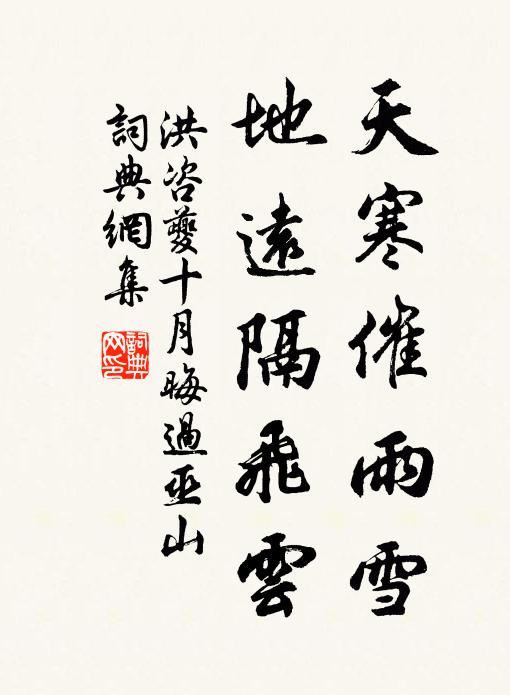 天寒催雨雪
地遠隔飛雲
洪咨夔十月晦過巫山
詞典網集
詞典网印